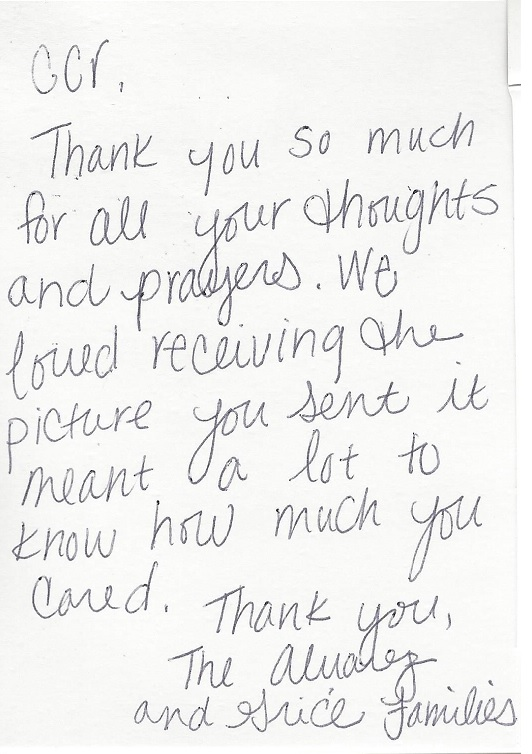 CCr,
Thank you so much
for all your thoughts
and prayers. We
loved receiving the
picture you sent it
meant a lot to
know how much you
cared. Thank you,
The Alvarez
and Grice Families